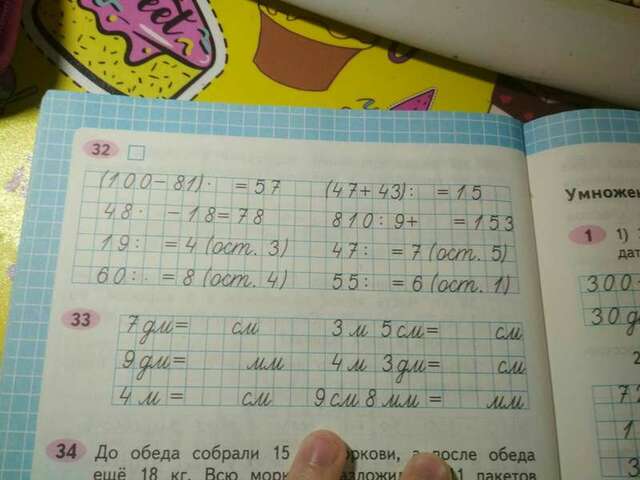 eet
32
(100-81)· =57 (47+43): =15
48· -18=78 810:9+ =153
19: =4 (ост. 3) 47: =7 (ост. 5)
60: =8 (ост. 4) 55: =6 (ост. 1)
33
7 дм= см 3 м 5 см= см
9 дм= мм 4 м 3 дм= см
4 м = см 9 см 8 мм = мм
34 До обеда собрали 15 моркови, а после обеда
ещё 18 кг. Всю пакетов
Умножен
1 1)
дат
300
30 д
2
7
1
3